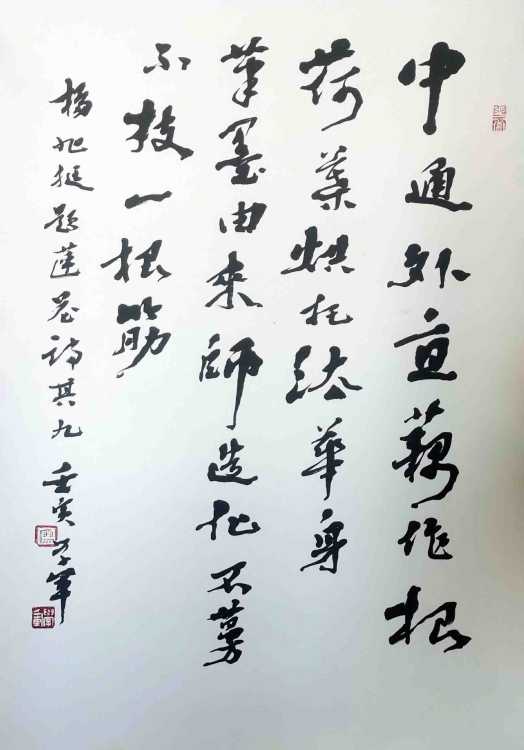 中通外直藕作根
荷葉烘托法華身
筆墨由來師造化不蔓
不枝一根筋
楊旭挺題蓮花詩其九 壬寅学軍